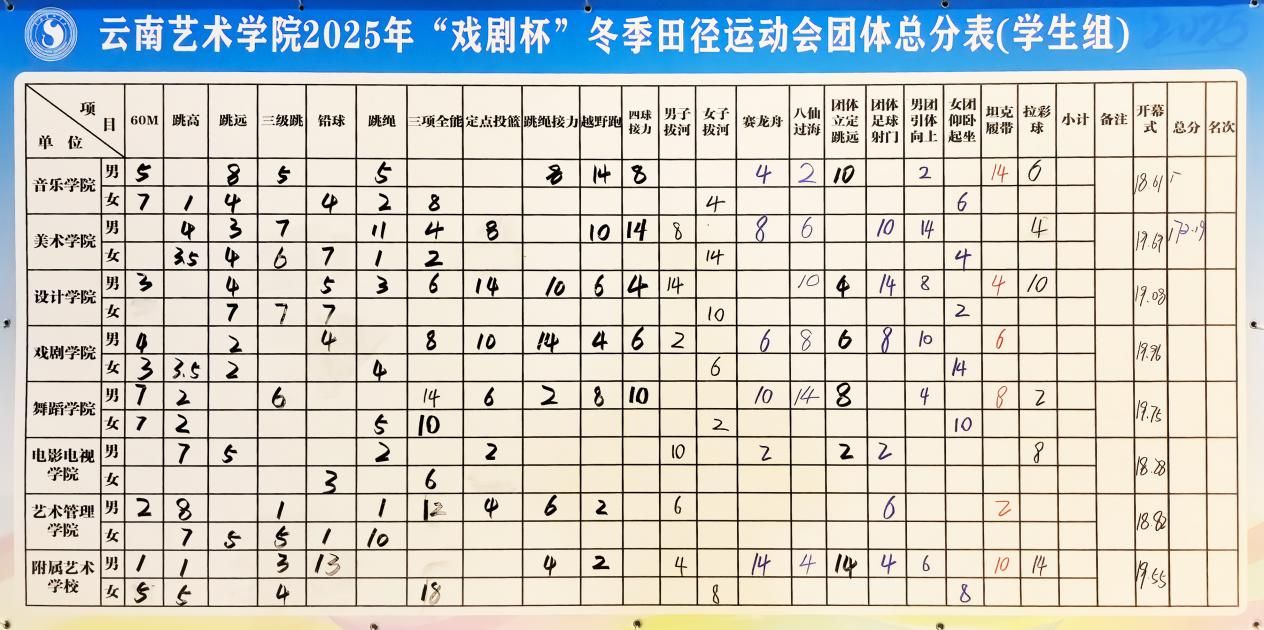 云南艺术学院2025年“戏剧杯”冬季田径运动会团体总分表(学生组) 2025
项目 单位 60M 跳高 跳远 三级跳 铅球 跳绳 三项全能 定点投篮 跳绳接力 越野跑 四球接力 男子拔河 女子拔河 赛龙舟 八仙过海 团体立定跳远 团体足球射门 男团引体向上 女团仰卧起坐 坦克履带 拉彩球 小计 备注 开幕式 总分 名次
音乐学院 男 5 8 5 5 8 14 8 4 2 10 2 14 6 18.61
女 7 1 4 4 2 8 4 6
美术学院 男 4 3 7 11 4 8 10 14 8 8 6 10 14 4 19.69 172.19
女 3.5 4 6 7 1 2 14 4
设计学院 男 3 4 5 3 6 14 10 6 4 14 10 4 14 8 4 10 19.08
女 7 7 7 10 2
戏剧学院 男 4 2 4 8 10 14 4 6 2 6 8 6 8 10 6 19.96
女 3 3.5 2 4 6 14
舞蹈学院 男 7 2 6 14 6 2 8 10 10 14 8 4 8 2 19.75
女 7 2 5 10 2 10
电影电视学院 男 7 5 2 2 10 2 2 2 8 18.28
女 3 6
艺术管理学院 男 2 8 1 1 12 4 6 2 6 6 2 18.82
女 7 5 5 1 10
附属艺术学校 男 1 1 3 13 4 2 4 14 4 14 4 6 10 14 19.55
女 5 5 4 18 8 8